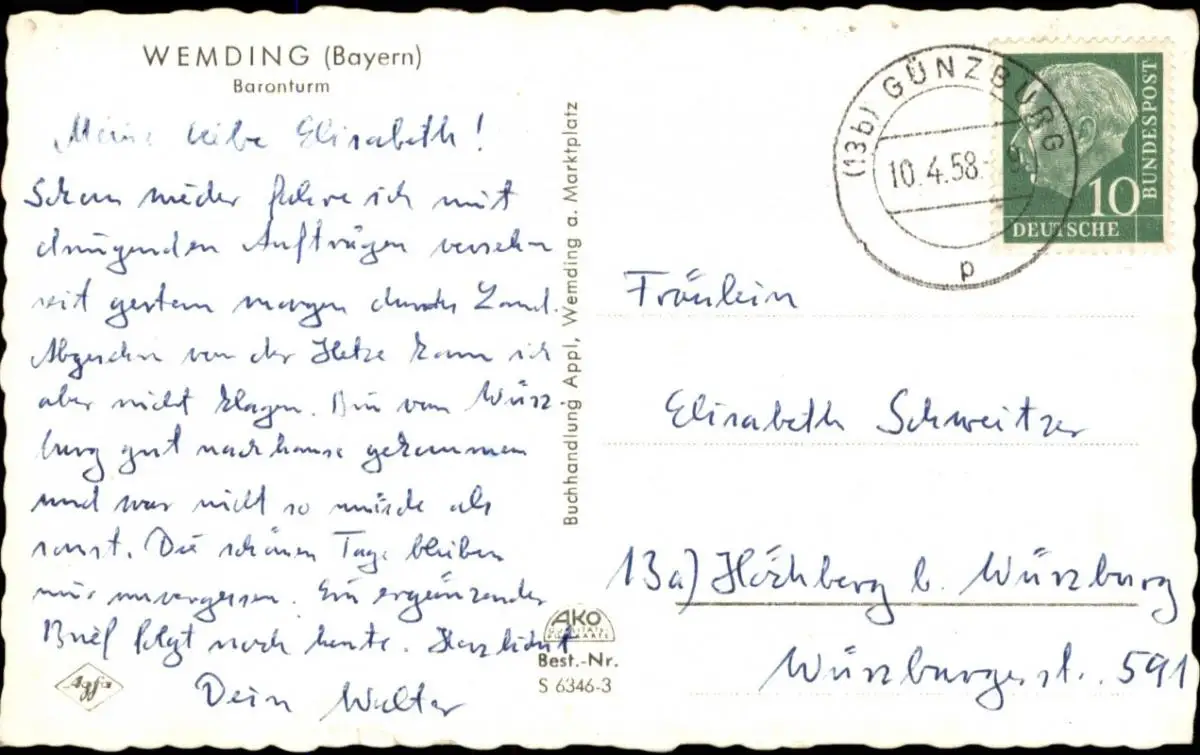 WEMDING (Bayern)
Baronturm
Meine liebe Elisabeth!
Schon wieder fahre ich mit
dringenden Aufträgen versehn
seit gestern morgen durchs Land.
Abgesehn von der Hetze kann ich
aber nicht klagen. Bin von Würz-
burg gut nachhause gekommen
und war nicht so müde als
sonst. Die schönen Tage bleiben
mir unvergessen. Ein ergänzender
Brief folgt noch heute. Herzlichst
Dein Walter
Agfa
Buchhandlung Appl, Wemding a. Marktplatz
AKO
Best.-Nr.
S 6346-3
(13b) GÜNZBURG
10.4.58.
p
10
DEUTSCHE
BUNDESPOST
Fräulein
Elisabeth Schweitzer
13a) Höchberg b. Würzburg
Würzburgerst. 591